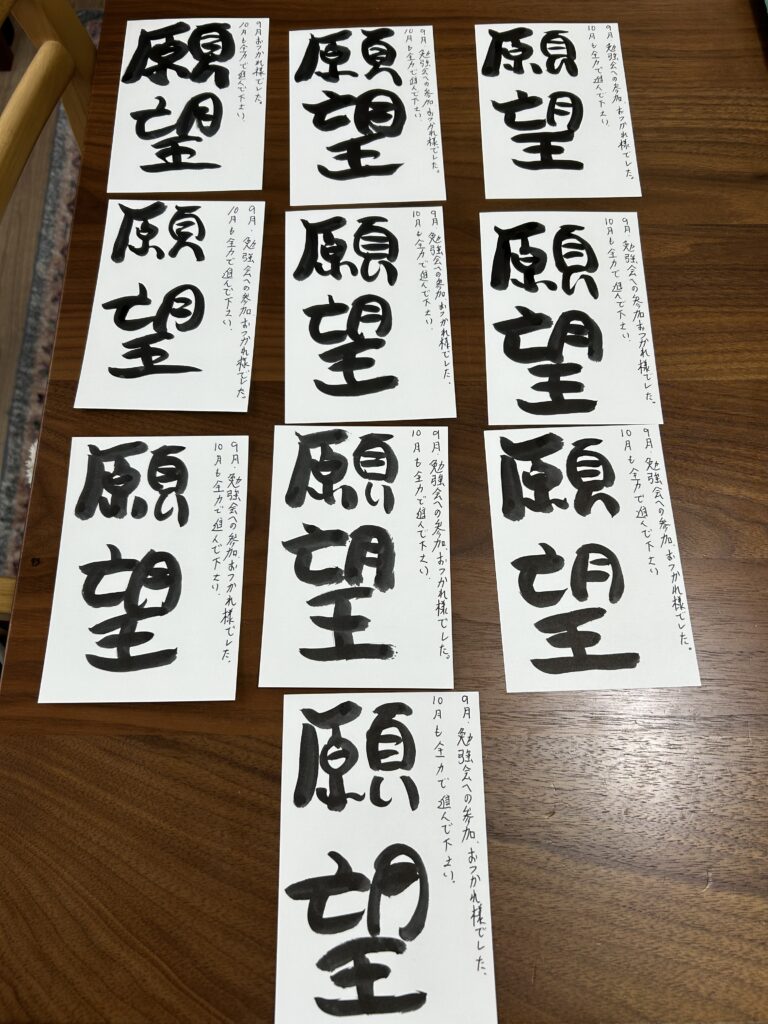 9月おつかれ様でした。
10月も全力で進んで下さい.
願望
9月 勉強会への参加、おつかれ様でした。
10月も全力で進んで下さい.
願望
9月 勉強会への参加、おつかれ様でした。
10月も全力で進んで下さい.
願望
9月.勉強会への参加、おつかれ様でした。
10月も全力で進んで下さい.
願望
9月 勉強会への参加、おつかれ様でした。
10月も全力で進んで下さい.
願望
9月 勉強会への参加、おつかれ様でした。
10月も全力で進んで下さい.
願望
9月.勉強会への参加、おつかれ様でした。
10月も全力で進んで下さい.
願望
9月.勉強会への参加、おつかれ様でした。
10月も全力で進んで下さい.
願望
9月.勉強会への参加、おつかれ様でした。
10月も全力で進んで下さい
願望
9月.勉強会への参加、おつかれ様でした。
10月も全力で進んで下さい.
願望